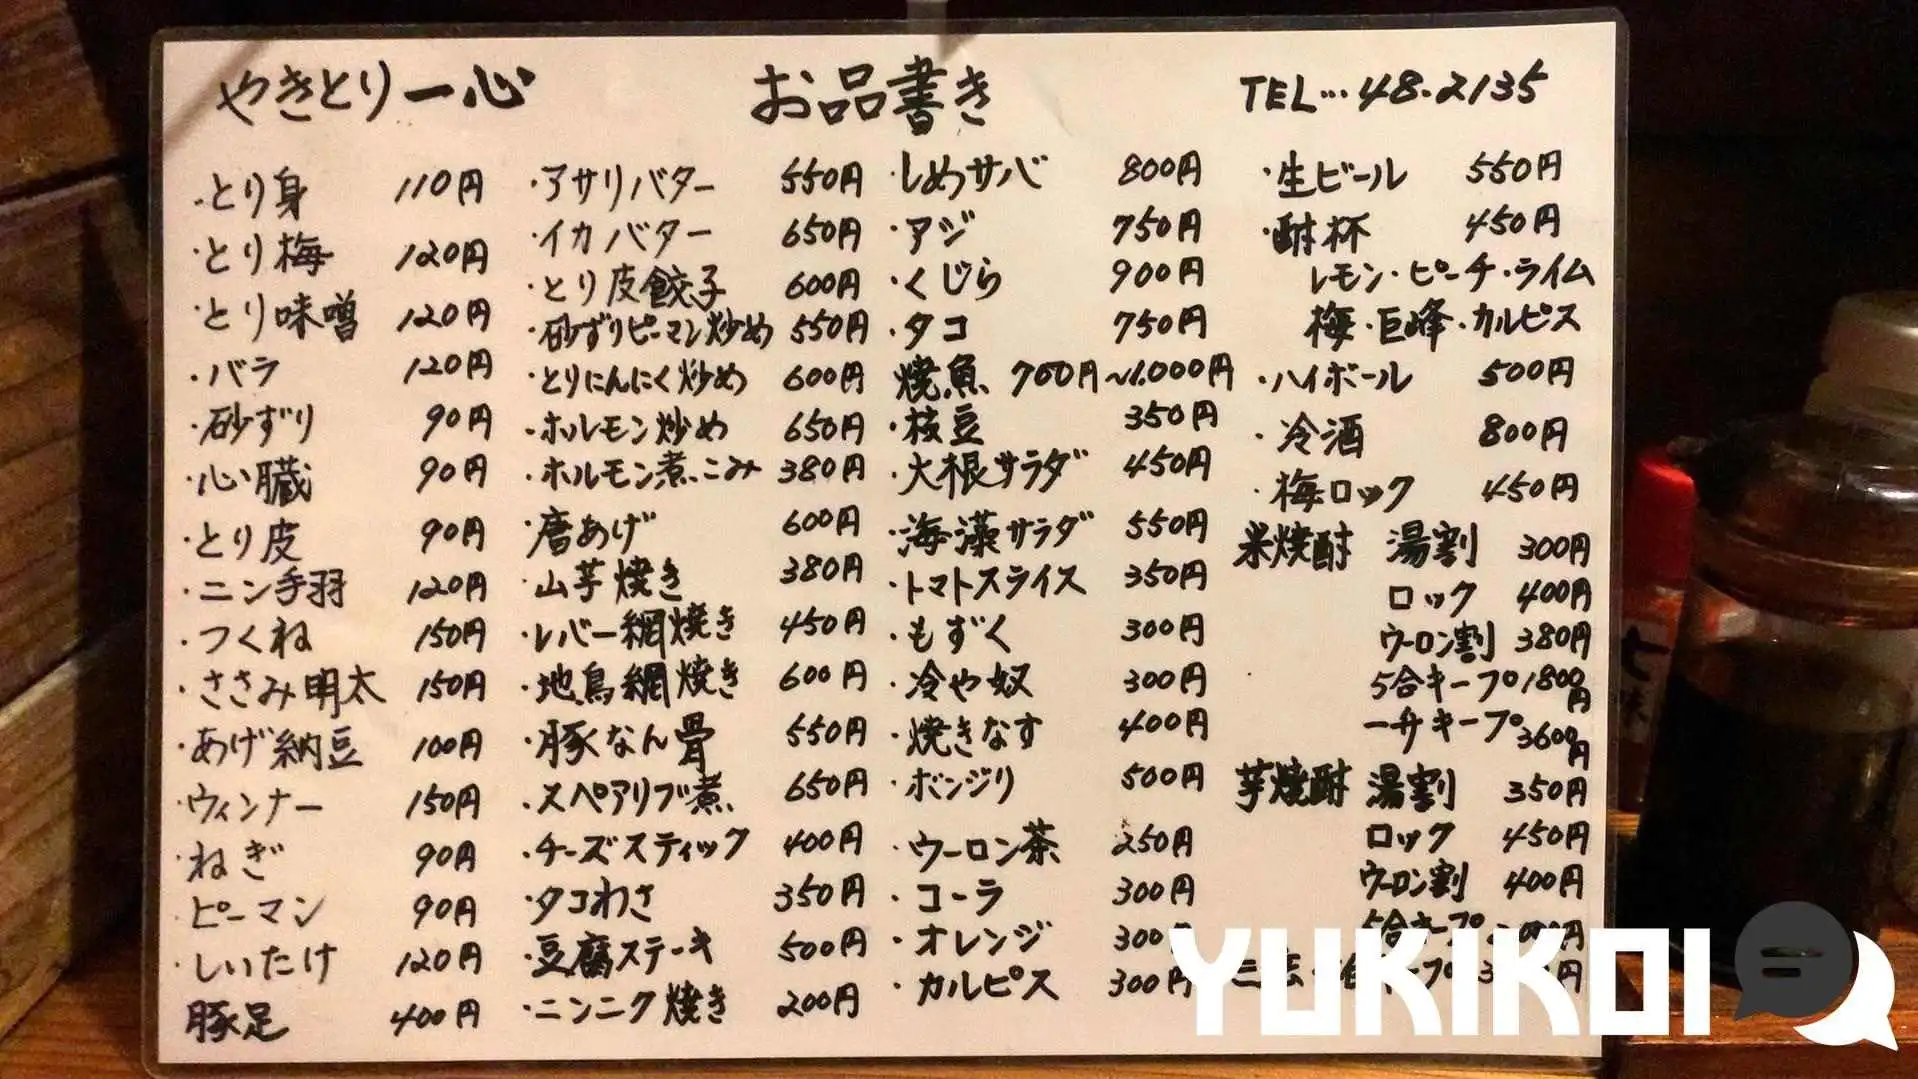 やきとり一心
お品書き
TEL…48.2135
・とり身 110円
・とり梅 120円
・とり味噌 120円
・バラ 120円
・砂ずり 90円
・心臓 90円
・とり皮 90円
・ニン手羽 120円
・つくね 150円
・ささみ明太 150円
・あげ納豆 100円
・ウィンナー 150円
・ねぎ 90円
・ピーマン 90円
・しいたけ 120円
豚足 400円
・アサリバター 550円
・イカバター 650円
・とり皮餃子 600円
・砂ずりピーマン炒め 550円
・とりにんにく炒め 600円
・ホルモン炒め 650円
・ホルモン煮こみ 380円
・唐あげ 600円
・山芋焼き 380円
・レバー網焼き 450円
・地鳥網焼き 600円
・豚なん骨 550円
・スペアリブ煮 650円
・チーズスティック 400円
・タコわさ 350円
・豆腐ステーキ 500円
・ニンニク焼き 200円
・しめサバ 800円
・アジ 750円
・くじら 900円
・タコ 750円
焼魚 700円~1.000円
・枝豆 350円
・大根サラダ 450円
・海藻サラダ 550円
・トマトスライス 350円
・もずく 300円
・冷や奴 300円
・焼きなす 400円
・ボンジリ 500円
・ウーロン茶 250円
・コーラ 300円
・オレンジ 300
・カルピス 300円
・生ビール 550円
・酎杯 450円
レモン・ピーチ・ライム
梅・巨峰・カルピス
・ハイボール 500円
・冷酒 800円
・梅ロック 450円
米焼酎 湯割 300円
ロック 400円
ウーロン割 380円
5合キープ1800円
一升キープ3600円
芋焼酎 湯割 350円
ロック 450円
ウーロン割 400円
5合キープ
YUKIKOI